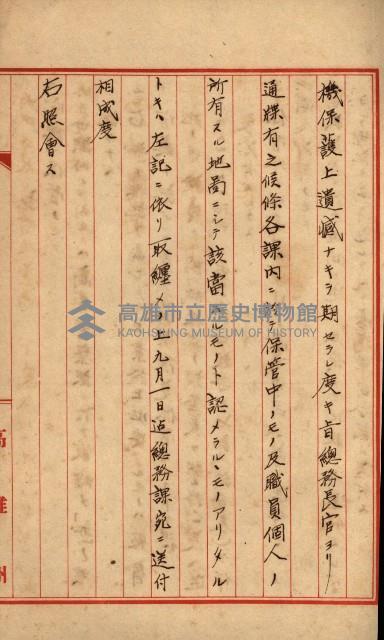 機保護上遺憾ナキヲ期セラレ度キ旨總務長官ヨリ
通牒有之候條各課内ニ於テ保管中ノモノ及職員個人ノ
所有スル地圖ニシテ該當スルモノト認メラルヽモノアリタル
トキハ左記ニ依リ取纏メ上九月一日迄總務課宛ニ送付
相成度
右照會ス
高雄州
高雄市立歷史博物館
KAOHSIUNG MUSEUM OF HISTORY